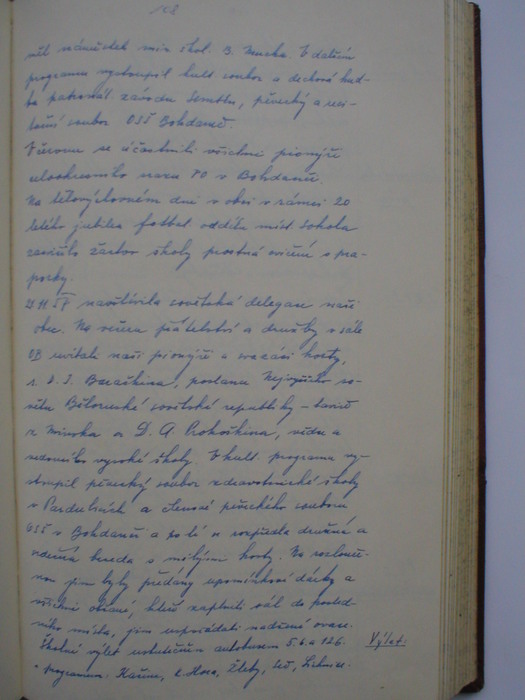 102
měl náměstek min. škol. B. Mucha. V dalším
programu vystoupil kult. soubor a dechová hud-
ba patronát. závodu Semtín, pěvecký a reci-
tační soubor OSŠ Bohdaneč.
V červnu se účastnili všichni pionýři
celookresního srazu PO v Bohdanči.
Na tělovýchovném dni v obci v rámci 20
letého jubilea fotbal. oddílu míst. Sokola
zacvičilo žactvo školy prostná cvičení s pra-
porky.
navštívila sovětská delegace naši
obec. Na večeru přátelství a družby v sále
OB uvítali naši pionýři a svazáci hosty,
s. poslance Nejvyššího so-
větu Běloruské sovětské republiky –
z Minska a D. A. Prokoškina, vědu a
vedoucího vysoké školy. V kult. programu vy-
stoupil pěvecký soubor zdravotnické školy
v Pardubicích a členové pěveckého souboru
OSŠ v Bohdanči a poté se rozpředla družná a
vděčná beseda s milými hosty. Na rozlouče-
nou jim byly předány upomínkové dárky a
všichni občané, kteří zaplnili sál do posled-
ního místa, jim uspořádali nadšené ovace.
Školní výlet uskutečněn autobusem 5.6. a 12.6. Výlet:
s programem: Kačina, K. Hora, Žleby,